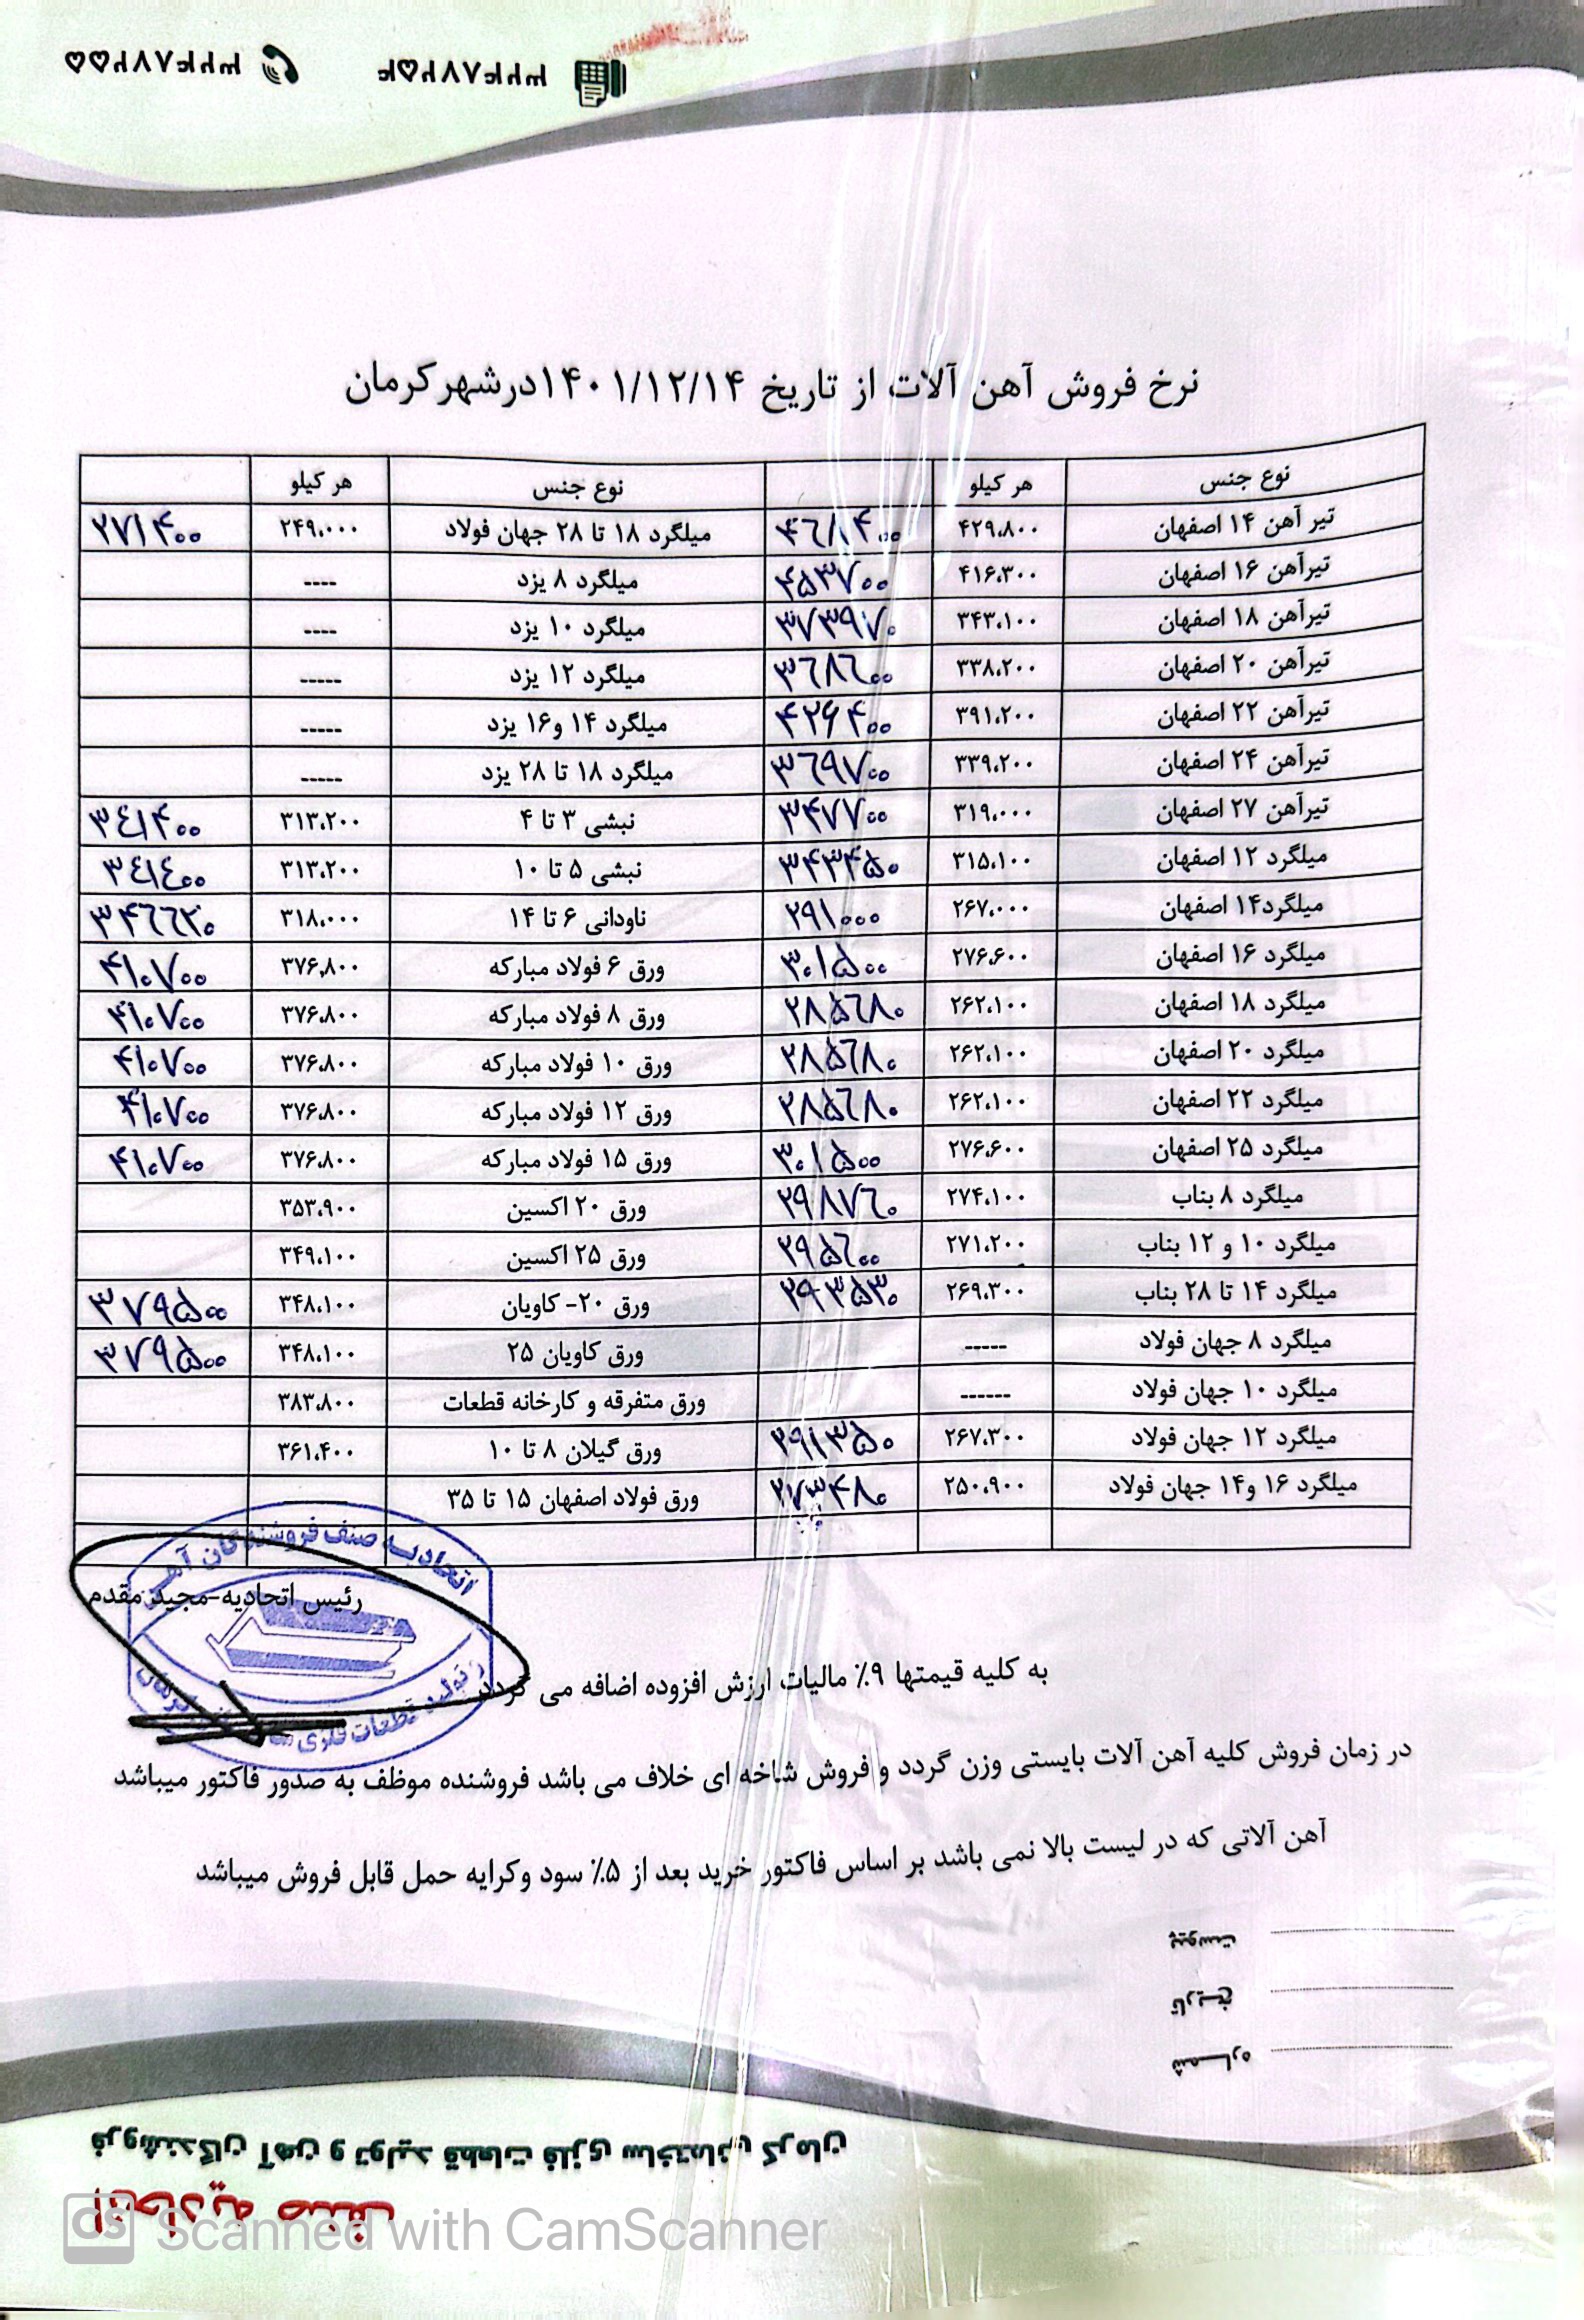 ۳۲۴۸۷۲۵۴ ۳۲۴۸۷۲۵۵
نرخ فروش آهن آلات از تاریخ ۱۴۰۱/۱۲/۱۴درشهرکرمان
نوع جنس هر کیلو نوع جنس هر کیلو
تیر آهن ۱۴ اصفهان ۴۲۹.۸۰۰ ۴۶۸۴۰۰ میلگرد ۱۸ تا ۲۸ جهان فولاد ۲۴۹.۰۰۰ ۲۷۱۴۰۰
تیرآهن ۱۶ اصفهان ۴۱۶.۳۰۰ ۴۵۳۷۰۰ میلگرد ۸ یزد ----
تیرآهن ۱۸ اصفهان ۳۴۳.۱۰۰ ۳۷۳۹۷۰ میلگرد ۱۰ یزد ----
تیرآهن ۲۰ اصفهان ۳۳۸.۲۰۰ ۳۶۸۶۰۰ میلگرد ۱۲ یزد -----
تیرآهن ۲۲ اصفهان ۳۹۱.۲۰۰ ۴۲۶۴۰۰ میلگرد ۱۴ و۱۶ یزد -----
تیرآهن ۲۴ اصفهان ۳۳۹.۲۰۰ ۳۶۹۷۰۰ میلگرد ۱۸ تا ۲۸ یزد -----
تیرآهن ۲۷ اصفهان ۳۱۹.۰۰۰ ۳۴۷۷۰۰ نبشی ۳ تا ۴ ۳۱۳.۲۰۰ ۳۴۱۴۰۰
میلگرد ۱۲ اصفهان ۳۱۵.۱۰۰ ۳۴۳۴۵۰ نبشی ۵ تا ۱۰ ۳۱۳.۲۰۰ ۳۴۱۴۰۰
میلگرد۱۴ اصفهان ۲۶۷.۰۰۰ ۲۹۱۰۰۰ ناودانی ۶ تا ۱۴ ۳۱۸.۰۰۰ ۳۴۶۶۲۰
میلگرد ۱۶ اصفهان ۲۷۶.۶۰۰ ۳۰۱۵۰۰ ورق ۶ فولاد مبارکه ۳۷۶.۸۰۰ ۴۱۰۷۰۰
میلگرد ۱۸ اصفهان ۲۶۲.۱۰۰ ۲۸۵۶۸۰ ورق ۸ فولاد مبارکه ۳۷۶.۸۰۰ ۴۱۰۷۰۰
میلگرد ۲۰ اصفهان ۲۶۲.۱۰۰ ۲۸۵۶۸۰ ورق ۱۰ فولاد مبارکه ۳۷۶.۸۰۰ ۴۱۰۷۰۰
میلگرد ۲۲ اصفهان ۲۶۲.۱۰۰ ۲۸۵۶۸۰ ورق ۱۲ فولاد مبارکه ۳۷۶.۸۰۰ ۴۱۰۷۰۰
میلگرد ۲۵ اصفهان ۲۷۶.۶۰۰ ۳۰۱۵۰۰ ورق ۱۵ فولاد مبارکه ۳۷۶.۸۰۰ ۴۱۰۷۰۰
میلگرد ۸ بناب ۲۷۴.۱۰۰ ۲۹۸۷۶۰ ورق ۲۰ اکسین ۳۵۳.۹۰۰
میلگرد ۱۰ و ۱۲ بناب ۲۷۱.۲۰۰ ۲۹۵۶۰۰ ورق ۲۵ اکسین ۳۴۹.۱۰۰
میلگرد ۱۴ تا ۲۸ بناب ۲۶۹.۳۰۰ ۲۹۳۵۳۰ ورق ۲۰- کاویان ۳۴۸.۱۰۰ ۳۷۹۵۰۰
میلگرد ۸ جهان فولاد ----- ورق کاویان ۲۵ ۳۴۸.۱۰۰ ۳۷۹۵۰۰
میلگرد ۱۰ جهان فولاد ------ ورق متفرقه و کارخانه قطعات ۳۸۳.۸۰۰
میلگرد ۱۲ جهان فولاد ۲۶۷.۳۰۰ ۲۹۱۳۵۰ ورق گیلان ۸ تا ۱۰ ۳۶۱.۴۰۰
میلگرد ۱۶ و۱۴ جهان فولاد ۲۵۰.۹۰۰ ۲۷۳۴۸۰ ورق فولاد اصفهان ۱۵ تا ۳۵
اتحادیه صنف فروشندگان آهن
رئیس اتحادیه-مجید مقدم
و تولید قطعات فلزی
به کلیه قیمتها ۹٪ مالیات ارزش افزوده اضافه می گردد
در زمان فروش کلیه آهن آلات بایستی وزن گردد و فروش شاخه ای خلاف می باشد فروشنده موظف به صدور فاکتور میباشد
آهن آلاتی که در لیست بالا نمی باشد بر اساس فاکتور خرید بعد از ۵٪ سود وکرایه حمل قابل فروش میباشد
پیوست
تاریخ
شماره
فروشندگان آهن و تولید قطعات فلزی ساختمانی کرمان
اتحادیه صنف
CS Scanned with CamScanner